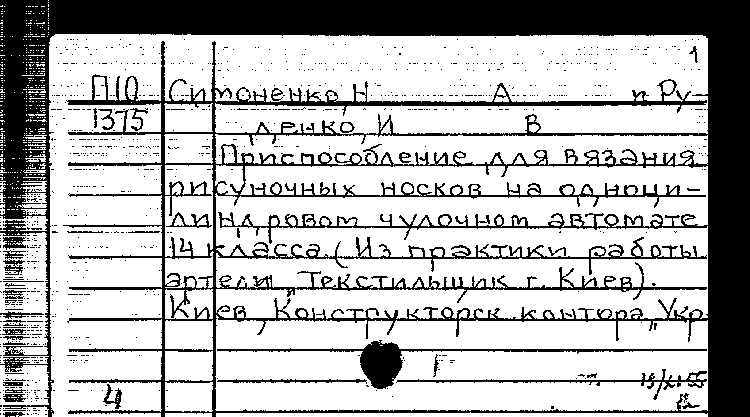 1
П10 Симоненко, Н А и Ру-
1375 денко, И В
Приспособление для вязания
рисуночных носков на одноци-
линдровом чулочном автомате
14 класса. (Из практики работы
артели „Текстильщик г. Киев).
Киев, Конструкторск контора „Укр
4